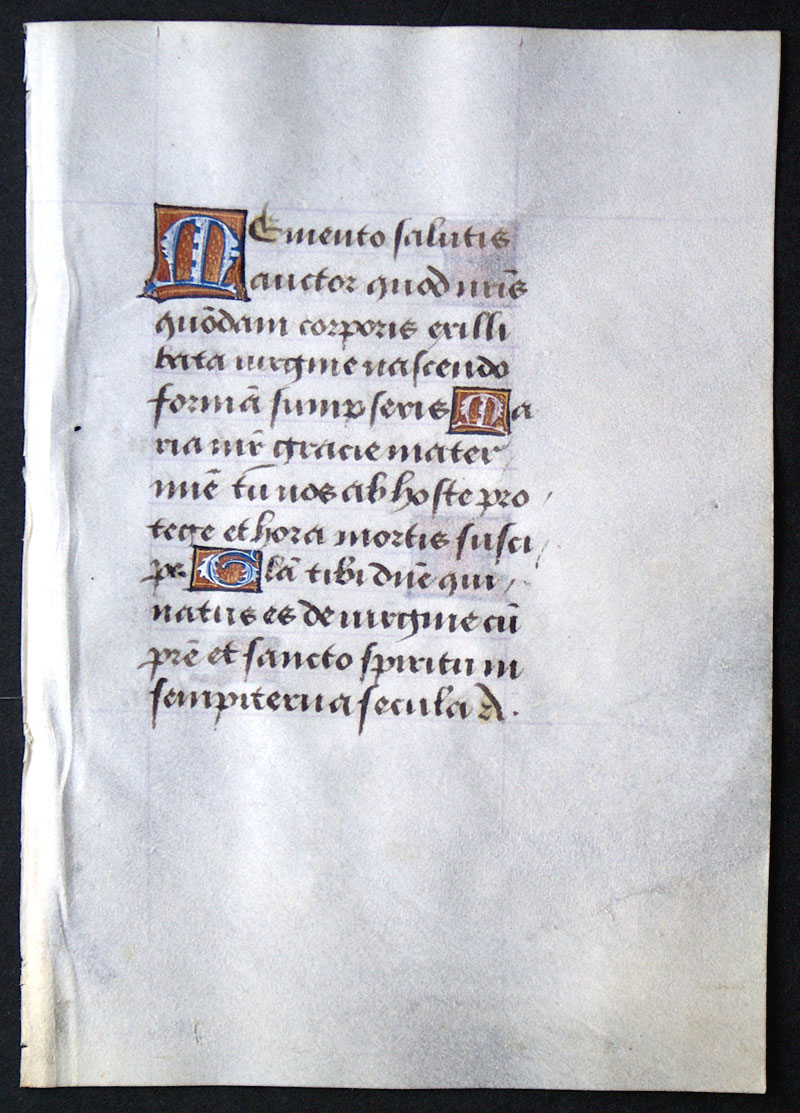 Memento salutis
auctor quod nr̃is
quōdam corporis exilli
bata uirgine nascendo
formā sumpseris Ma
ria mr̃ gracie mater
mīe tu nos ab hoste pro
tege et hora mortis susci
pe. Glã tibi dñe qui
natus es de uirgine cū
prē et sancto spiritu in
sempiterna secula A.